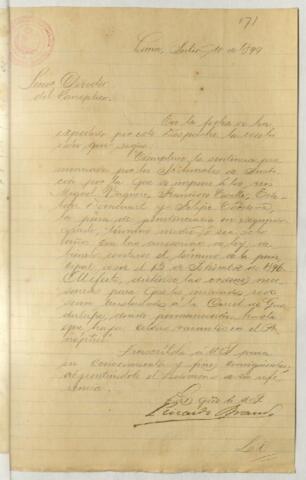 171
Lima, Julio 10 de 1899
Señor Director
del Panóptico.
En la fecha se ha
expedido por este Despacho la resolu
ción que sigue:
"Cúmplase la sentencia pro
nunciada por los Tribunales de Justi
cia por la que se impone á los reos
Miguel
Francisco
y Felipe
la pena de penitenciaría en segundo
grado, término medio, ó sea ocho
años, con las accesorias de ley, de
biendo contarse el término de la prin
cipal desde el 13 de Setiembre de 1896.
Al efecto, díctense las órdenes nece
sarias para que los mencionados reos
sean trasladados á la Carcel de Gua
dalupe, donde permanecerán hasta
que haya celdas vacantes en el Pa
nóptico".
Trascríbola á US. para
su conocimiento y fines consiguientes,
adjuntándole el testimonio de su refe
rencia.
Dios güe. á US.
Ricardo